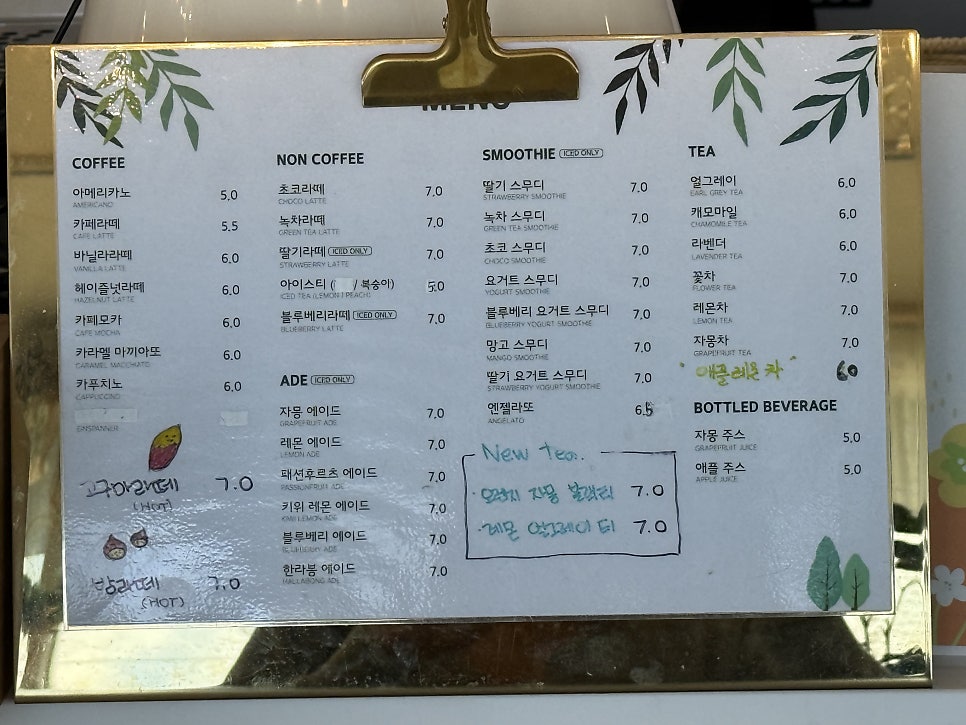 MENU
COFFEE
아메리카노 5.0
AMERICANO
카페라떼 5.5
CAFE LATTE
바닐라라떼 6.0
VANILLA LATTE
헤이즐넛라떼 6.0
HAZELNUT LATTE
카페모카 6.0
CAFE MOCHA
카라멜 마끼아또 6.0
CARAMEL MACCHIATO
카푸치노 6.0
CAPPUCCINO
EINSPANNER
고구마라떼 7.0
(HOT)
밤라떼 7.0
(HOT)
NON COFFEE
초코라떼 7.0
CHOCO LATTE
녹차라떼 7.0
GREEN TEA LATTE
딸기라떼 ICED ONLY 7.0
STRAWBERRY LATTE
아이스티 ( / 복숭아) 6.0
ICED TEA (LEMON / PEACH)
블루베리라떼 ICED ONLY 7.0
BLUEBERRY LATTE
ADE ICED ONLY
자몽 에이드 7.0
GRAPEFRUIT ADE
레몬 에이드 7.0
LEMON ADE
패션후르츠 에이드 7.0
PASSIONFRUIT ADE
키위 레몬 에이드 7.0
KIWI LEMON ADE
블루베리 에이드 7.0
BLUEBERRY ADE
한라봉 에이드 7.0
HALLABONG ADE
SMOOTHIE ICED ONLY
딸기 스무디 7.0
STRAWBERRY SMOOTHIE
녹차 스무디 7.0
GREEN TEA SMOOTHIE
초코 스무디 7.0
CHOCO SMOOTHIE
요거트 스무디 7.0
YOGURT SMOOTHIE
블루베리 요거트 스무디 7.0
BLUEBERRY YOGURT SMOOTHIE
망고 스무디 7.0
MANGO SMOOTHIE
딸기 요거트 스무디 7.0
STRAWBERRY YOGURT SMOOTHIE
엔젤라또 6.5
ANGELATO
New Tea.
· 오렌지 자몽 블랙티 7.0
· 레몬 얼그레이 티 7.0
TEA
얼그레이 6.0
EARL GREY TEA
캐모마일 6.0
CHAMOMILE TEA
라벤더 6.0
LAVENDER TEA
꽃차 7.0
FLOWER TEA
레몬차 7.0
LEMON TEA
자몽차 7.0
GRAPEFRUIT TEA
" 애플레몬차 " 6.0
BOTTLED BEVERAGE
자몽 주스 5.0
GRAPEFRUIT JUICE
애플 주스 5.0
APPLE JUICE